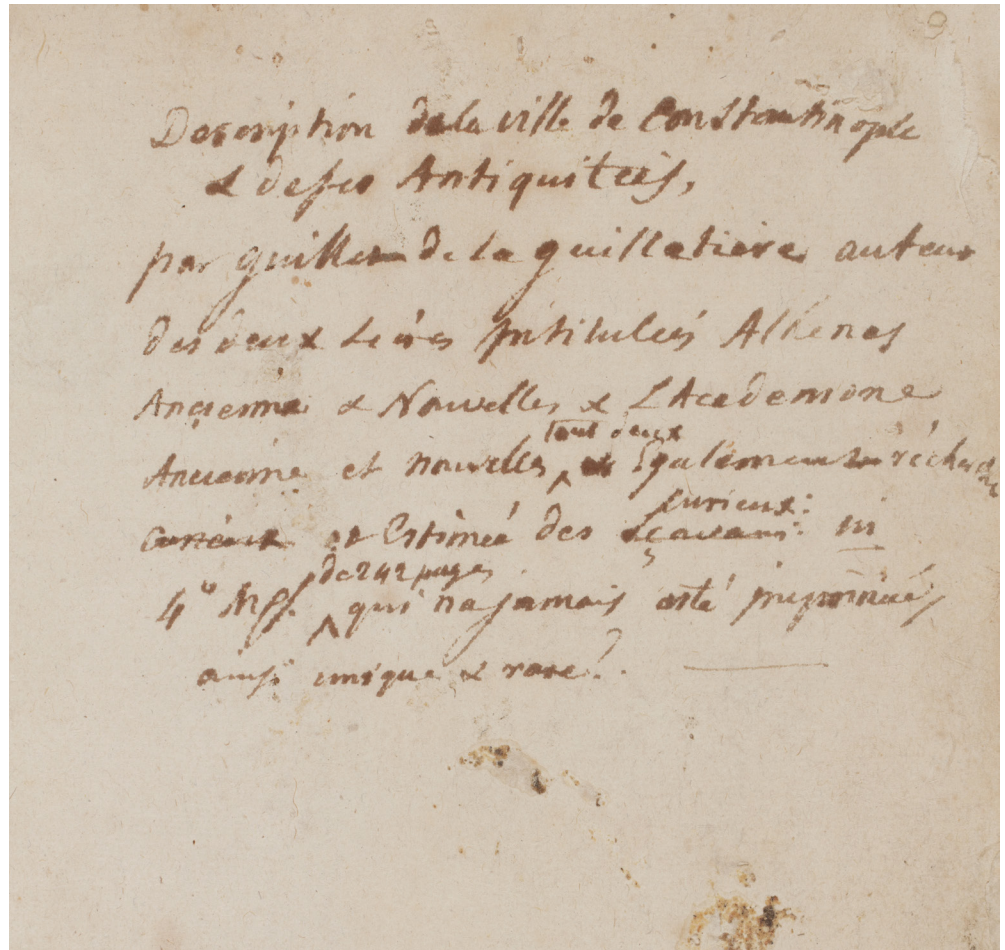 Description de la ville de Constantinople
& de ses Antiquiteés,
par guillet de la guilletiere auteur
des deux Livres Intitulés Athenes
Ancienne & Nouvelle, & LAcedemone
Ancienne et nouvelle, tout deux Egalement réchérchés
et Estimeé des curieux: in
4º Mss. de 242 pages qui na jamais esté jmpriméé,
ainsi unique & rare.